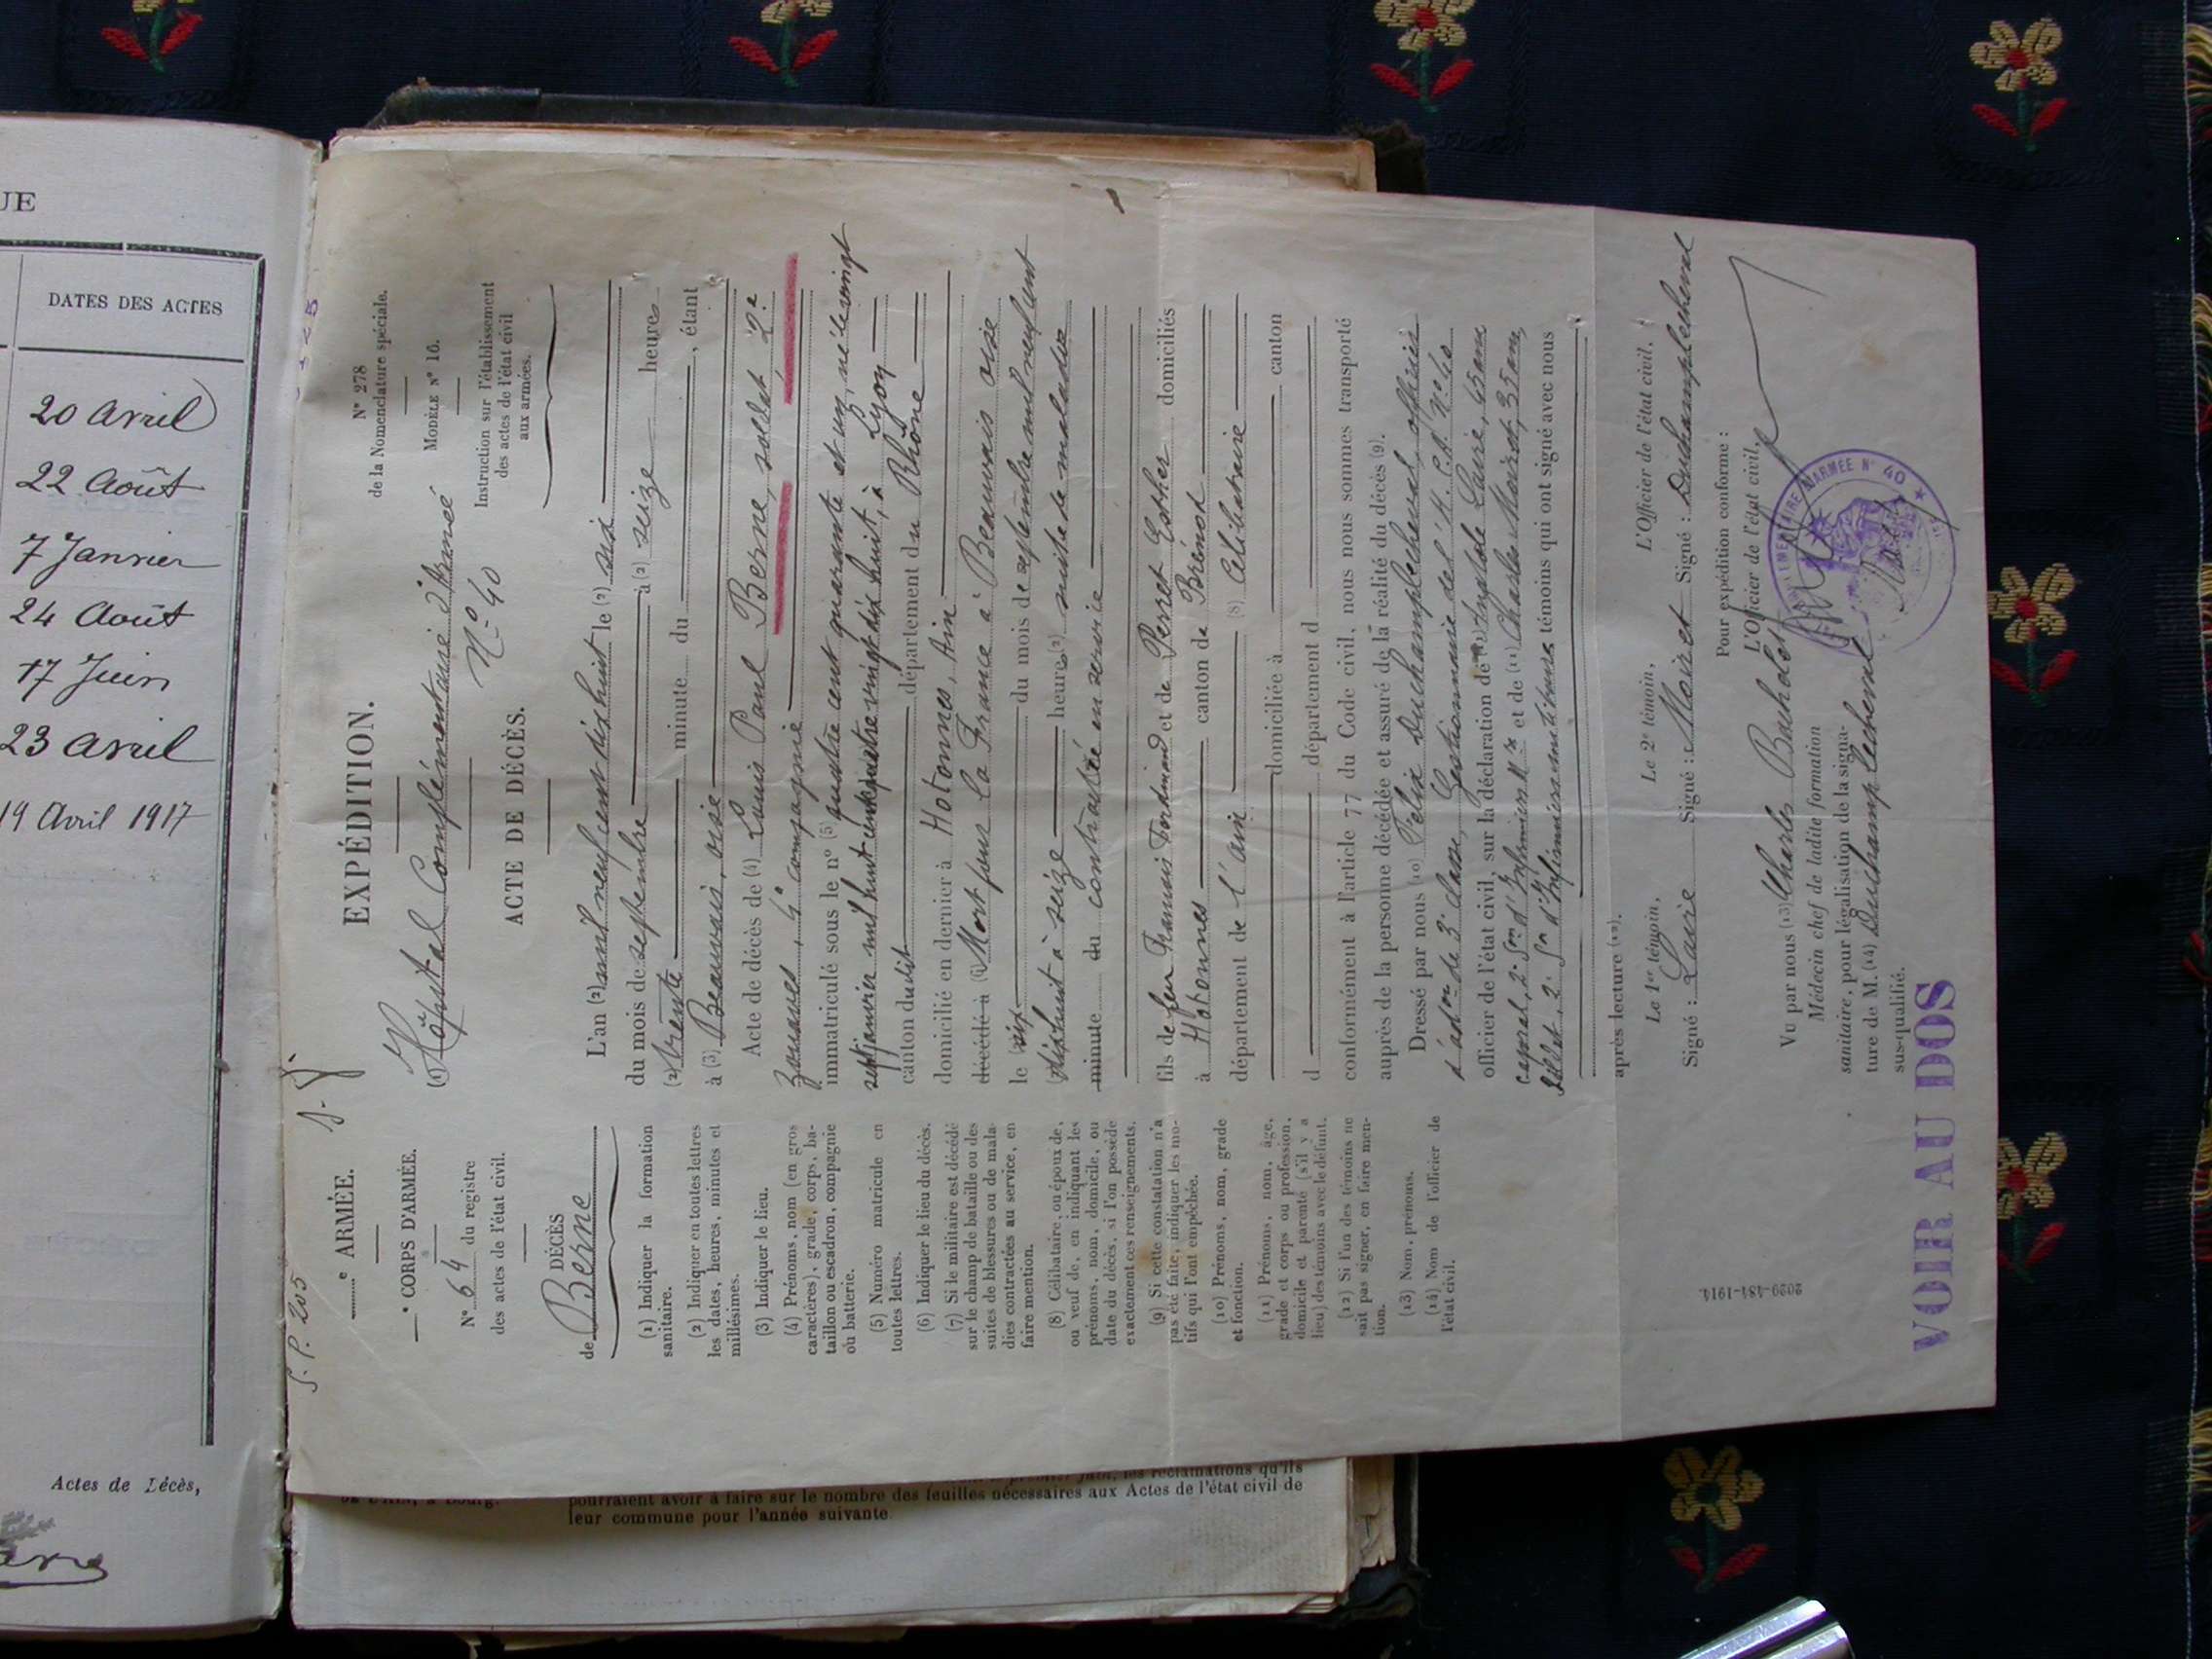 UE
DATES DES ACTES
20 Avril
22 Août
7 Janvier
24 Août
17 Juin
23 Avril
19 Avril 1917
Actes de Décès,
S. P. 205
ARMÉE.
CORPS D'ARMÉE.
N° 64 du registre
des actes de l'état civil.
DÉCÈS
de Berne
(1) Indiquer la formation
sanitaire.
(2) Indiquer en toutes lettres
les dates, heures, minutes et
millésimes.
(3) Indiquer le lieu.
(4) Prénoms, nom (en gros
caractères), grade, corps, ba-
taillon ou escadron, compagnie
ou batterie.
(5) Numéro matricule en
toutes lettres.
(6) Indiquer le lieu du décès.
(7) Si le militaire est décédé
sur le champ de bataille ou des
suites de blessures ou de mala-
dies contractées au service, en
faire mention.
(8) Célibataire, ou époux de,
ou veuf de, en indiquant les
prénoms, nom, domicile, ou
date du décès, si l'on possède
exactement ces renseignements.
(9) Si cette constatation n'a
pas été faite, indiquer les mo-
tifs qui l'ont empêchée.
(10) Prénoms, nom, grade
et fonction.
(11) Prénoms, nom, âge,
grade et corps ou profession,
domicile et parenté (s'il y a
lieu) des témoins avec le défunt.
(12) Si l'un des témoins ne
sait pas signer, en faire men-
tion.
(13) Nom, prénoms.
(14) Nom de l'officier de
l'état civil.
EXPÉDITION.
N° 278
de la Nomenclature spéciale.
MODÈLE N° 16.
Instruction sur l'établissement
des actes de l'état civil
aux armées.
(1) Hôpital Complémentaire d'Armée
N° 40
ACTE DE DÉCÈS.
L'an (2) mil neuf cent dix huit le (2) six
du mois de septembre à (2) seize heures
(2) trente minute du , étant
à (3) Beauvais, oise
Acte de décès de (4) Louis Paul Berne, soldat 2e
zouaves, 4e compagnie
immatriculé sous le n° (5) quatre cent quarante et un, né le vingt
sept janvier mil huit cent quatre vingt dix huit, à Lyon
canton dudit département du Rhône
domicilié en dernier à Hotonnes, Ain
décédé à (6) Mort pour la France à Beauvais oise
le six du mois de septembre mil neuf cent
dix huit à seize heures (2) suite de maladie
minute du contractée en service
fils de feu Francois Ferdinand et de Perret Esther domiciliés
à Hotonnes canton de Brénod
département de l'ain (8) Célibataire
domiciliée à canton
d département d
conformément à l'article 77 du Code civil, nous nous sommes transporté
auprès de la personne décédée et assuré de la réalité du décès (9).
Dressé par nous (10) Felix Duchamplecheval, officier
d'adon de 3e classe, Gestionnaire de l'H. C. A. N° 40
officier de l'état civil, sur la déclaration de (11) Anatole Laire, 45 ans
caporal, 2e Son d'Infirmiers Mres et de (11) Charles Moiret, 35 ans
soldat, 2e Son d'Infirmiers militaires témoins qui ont signé avec nous
après lecture (12).
Le 1er témoin, Le 2e témoin, L'Officier de l'état civil,
Signé : Laire Signé : Moiret Signé : Duchamplecheval
Pour expédition conforme :
L'Officier de l'état civil,
Vu par nous (13) Charles Bachelet
Médecin chef de ladite formation
sanitaire, pour légalisation de la signa-
ture de M. (14) Duchamplecheval
sus-qualifié.
COMPLÉMENTAIRE D'ARMÉE N° 40
2029-484-1914
VOIR AU DOS
pourraient avoir à faire sur le nombre des feuilles nécessaires aux Actes de l'état civil de
leur commune pour l'année suivante.